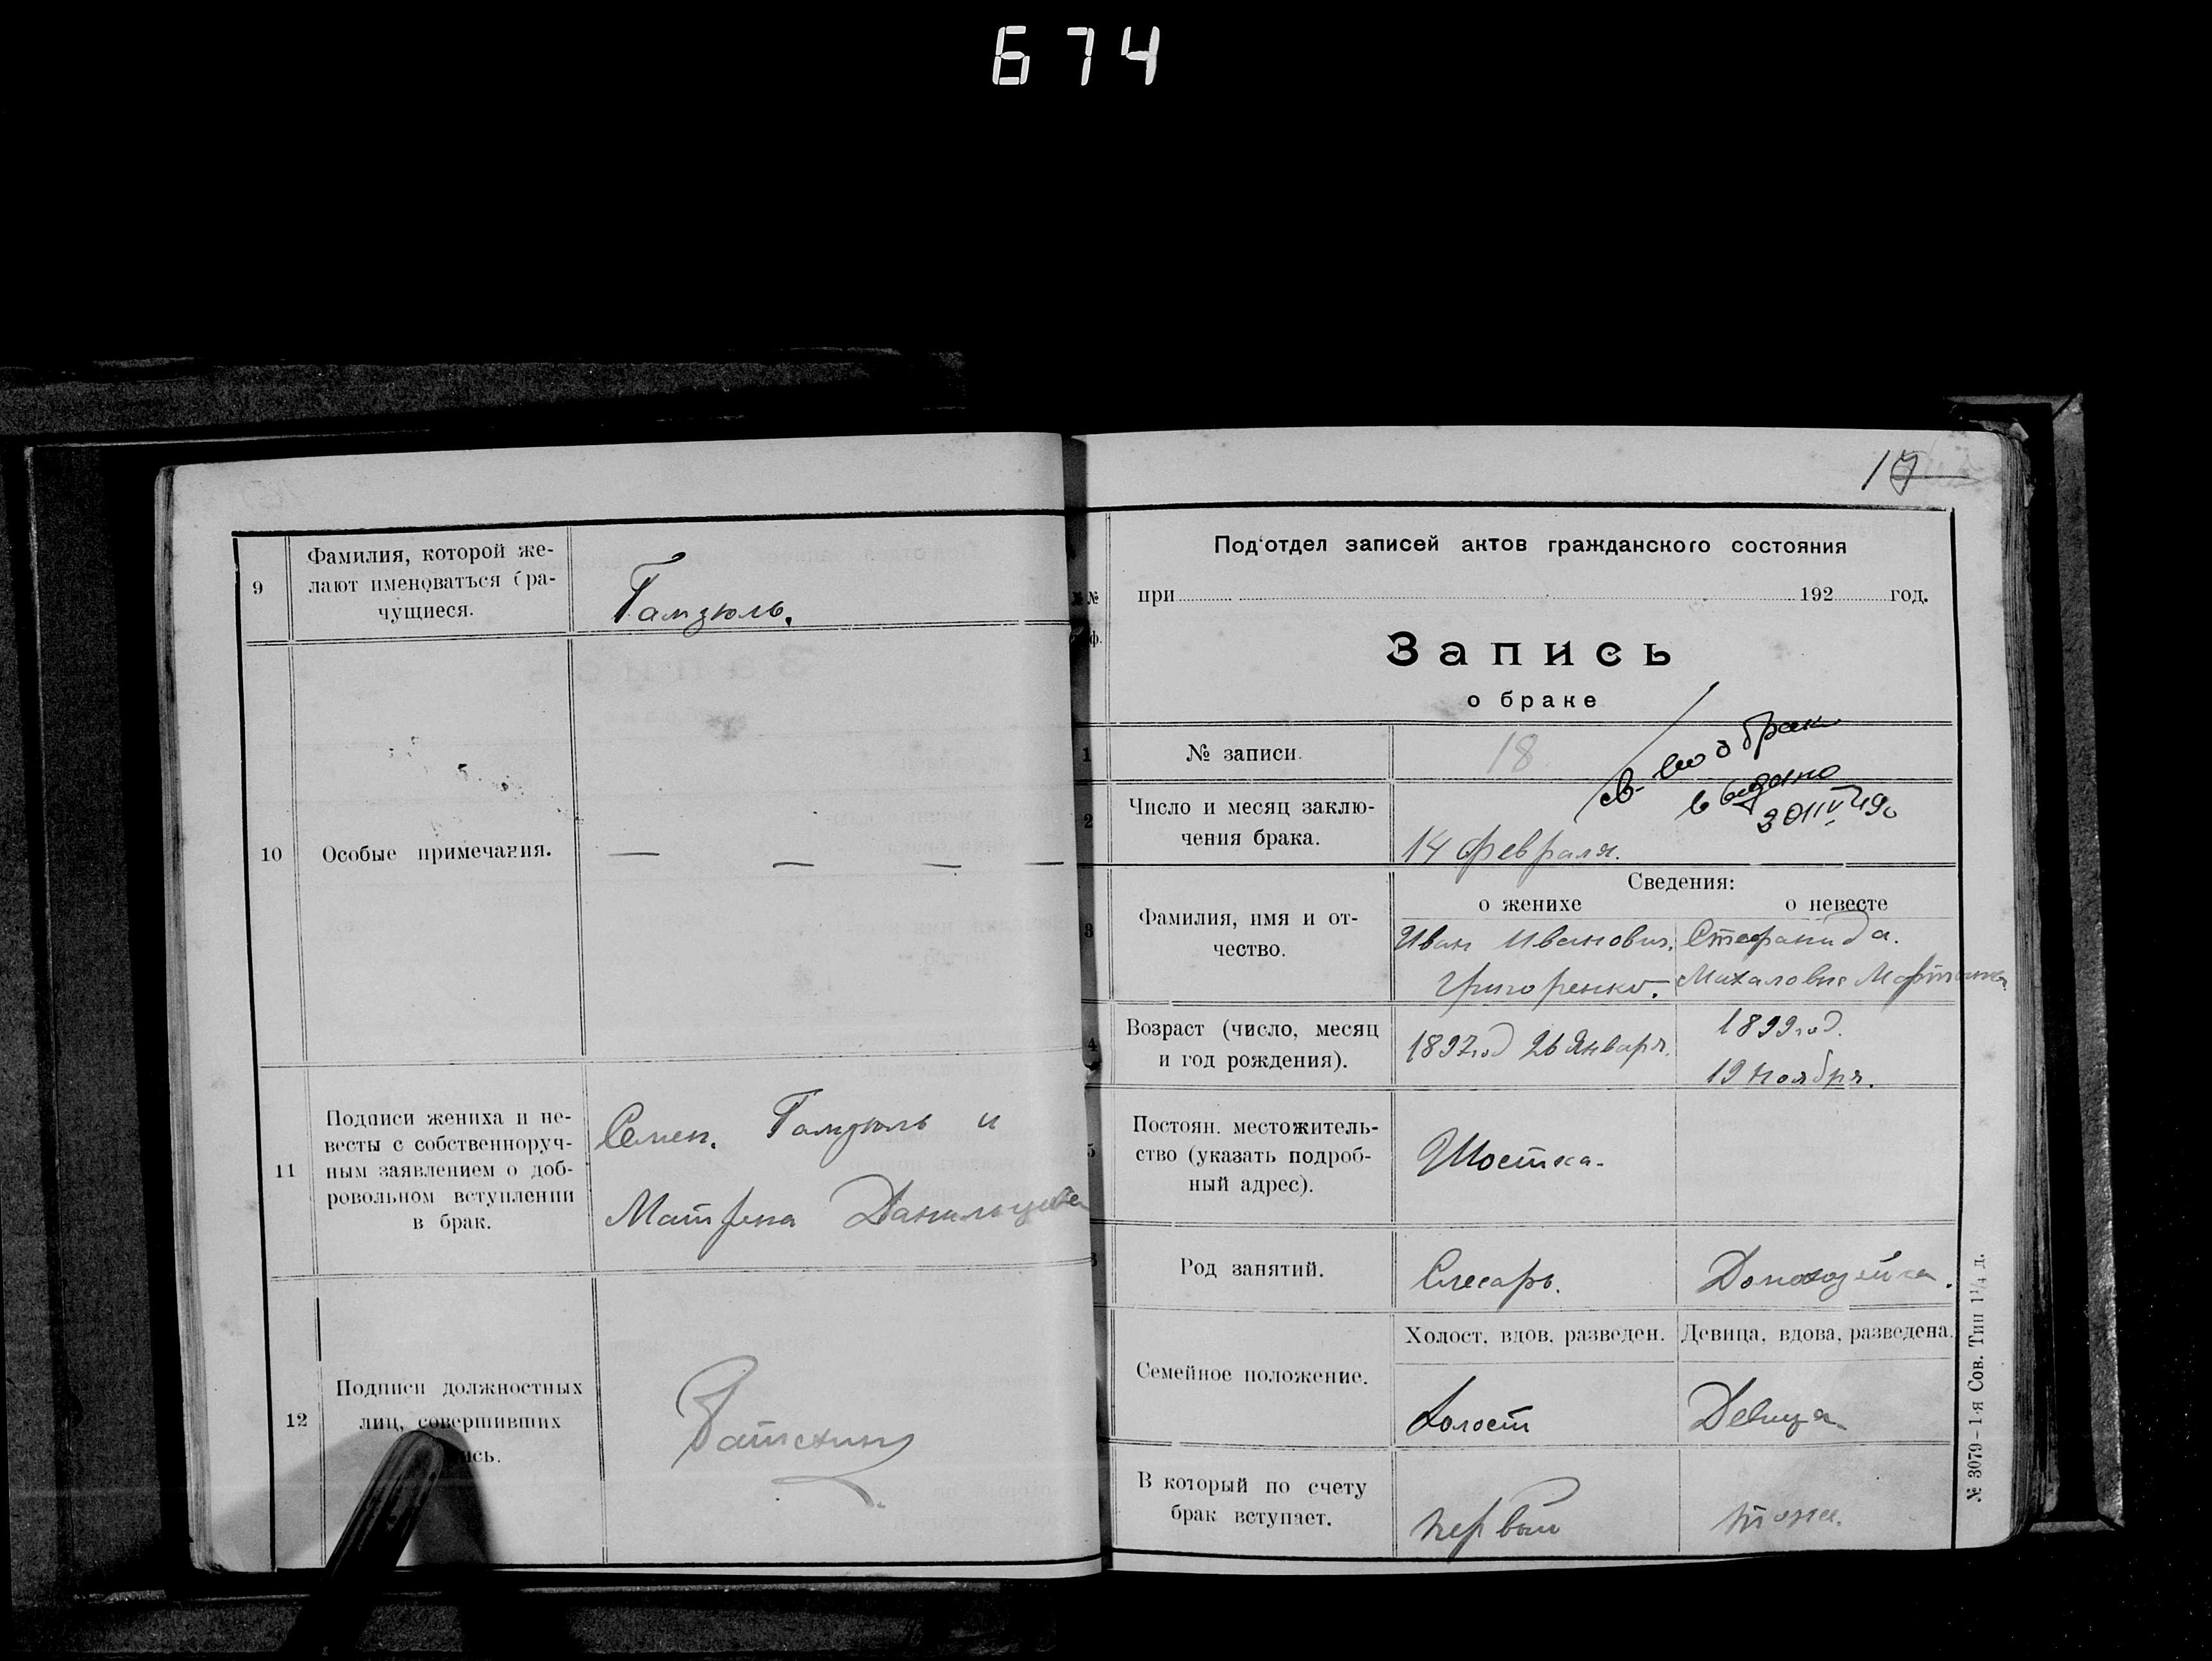 674
9
Фамилия, которой же-
лают именоваться бра-
чущиеся.
Гамзюль.
10
Особые примечания.
— — — —
11
Подписи жениха и не-
весты с собственноруч-
ным заявлением о доб-
ровольном вступлении
в брак.
Семен. Гамзюль и
Матрена
12
Подписи должностных
лиц, совершивших
ись.
17
Под'отдел записей актов гражданского состояния
№
при 192 год.
ф.
Запись
о браке
1
№ записи.
18
св-во о браке
выдано
2
Число и месяц заклю-
чения брака.
14 февраля.
Сведения:
о женихе
о невесте
3
Фамилия, имя и от-
чество.
Иван Иванович.
Григоренко.
Стефанида.
4
Возраст (число, месяц
и год рождения).
1897 год 26 Января.
1899 год.
19 Ноября.
5
Постоян. местожитель-
ство (указать подроб-
ный адрес).
Шостка.
Род занятий.
Слесарь.
Домохозяйка.
Семейное положение.
Холост. вдов, разведен.
Девица, вдова, разведена.
Холост
Девица
В который по счету
брак вступает.
первый
тоже.
№ 3079 – 1-я Сов. Тип 1¼ д.